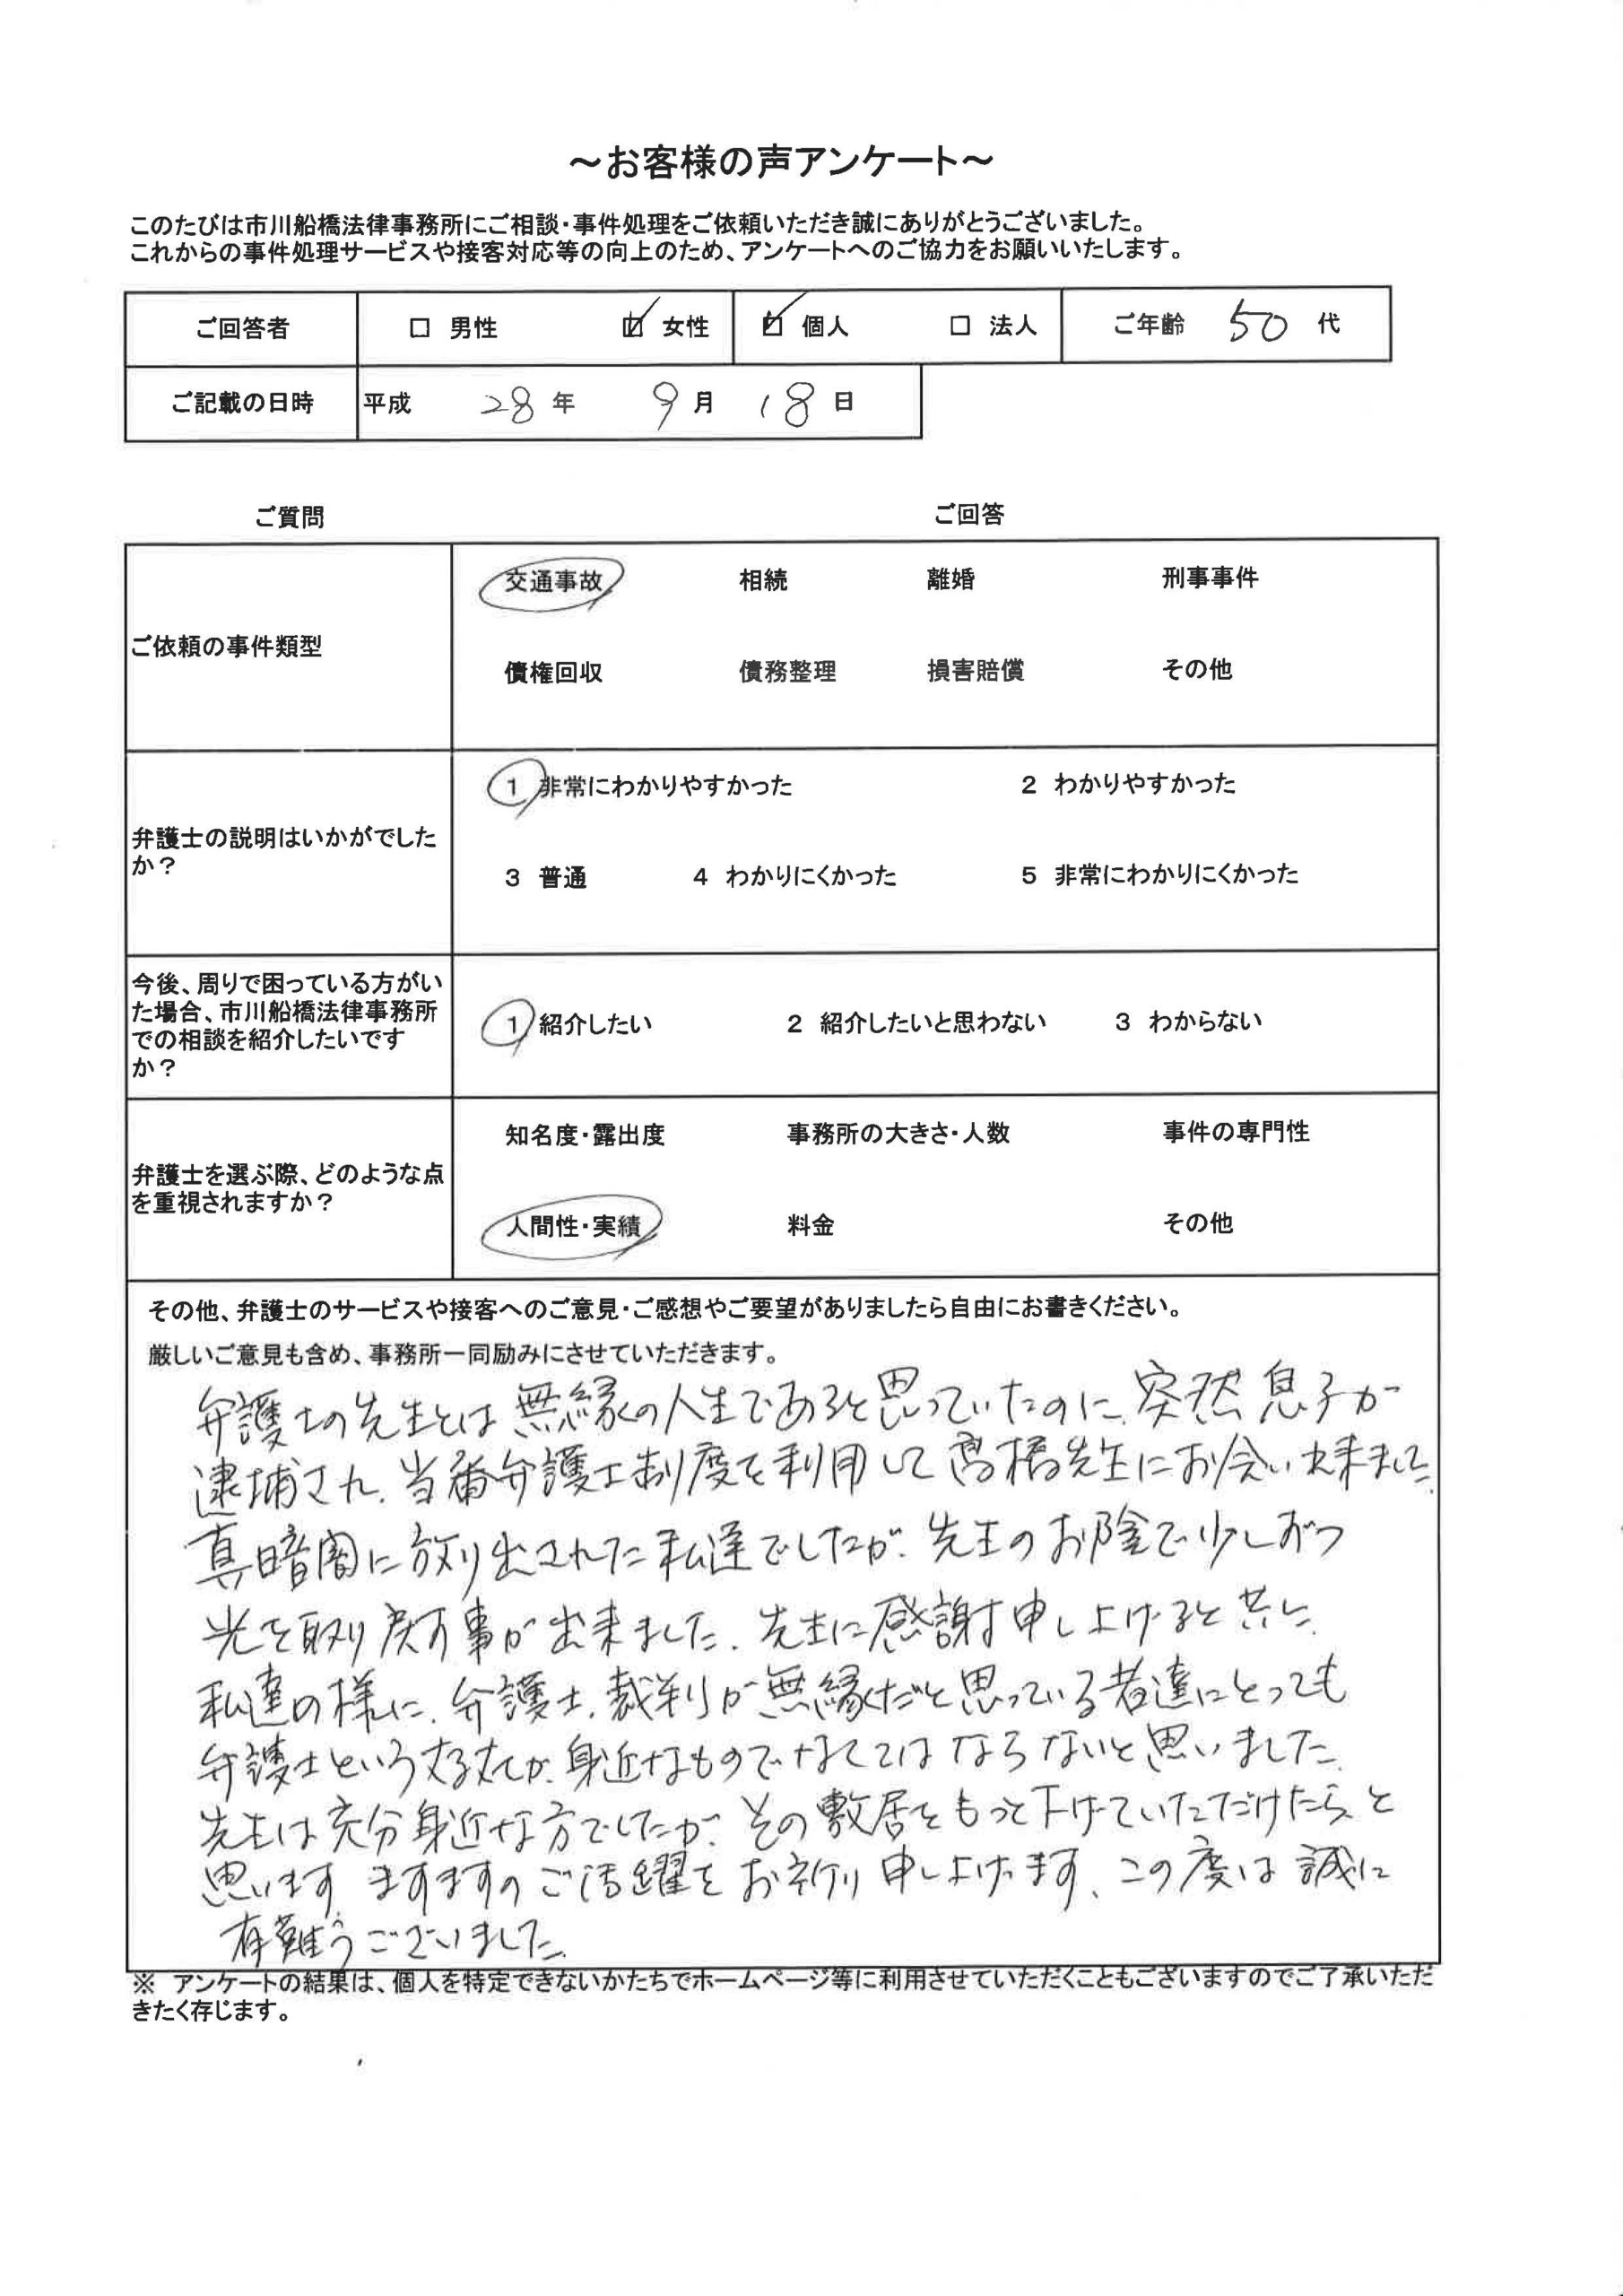 ～お客様の声アンケート～
このたびは市川船橋法律事務所にご相談・事件処理をご依頼いただき誠にありがとうございました。
これからの事件処理サービスや接客対応等の向上のため、アンケートへのご協力をお願いいたします。
ご回答者 □ 男性 ☑ 女性 ☑ 個人 □ 法人 ご年齢 50 代
ご記載の日時 平成 28 年 9 月 18 日
ご質問 ご回答
ご依頼の事件類型
交通事故 相続 離婚 刑事事件
債権回収 債務整理 損害賠償 その他
弁護士の説明はいかがでした
か？
1 非常にわかりやすかった 2 わかりやすかった
3 普通 4 わかりにくかった 5 非常にわかりにくかった
今後、周りで困っている方がい
た場合、市川船橋法律事務所
での相談を紹介したいです
か？
1 紹介したい 2 紹介したいと思わない 3 わからない
弁護士を選ぶ際、どのような点
を重視されますか？
知名度・露出度 事務所の大きさ・人数 事件の専門性
人間性・実績 料金 その他
その他、弁護士のサービスや接客へのご意見・ご感想やご要望がありましたら自由にお書きください。
厳しいご意見も含め、事務所一同励みにさせていただきます。
弁護士の先生とは無縁の人生であると思っていたのに、突然息子が
逮捕され、当番弁護士制度を利用して高橋先生にお会い出来ました。
真暗闇に放り出された私達でしたが、先生のお陰で少しずつ
光を取り戻す事が出来ました。先生に感謝申し上げると共に、
私達の様に、弁護士、裁判が無縁だと思っている者達にとっても
弁護士という が、身近なものでなくてはならないと思いました。
先生は充分身近な方でしたが、その敷居をもっと下げていただけたら、と
思います。ますますのご活躍をお祈り申し上げます、この度は誠に
有難うございました。
※ アンケートの結果は、個人を特定できないかたちでホームページ等に利用させていただくこともございますのでご了承いただ
きたく存じます。